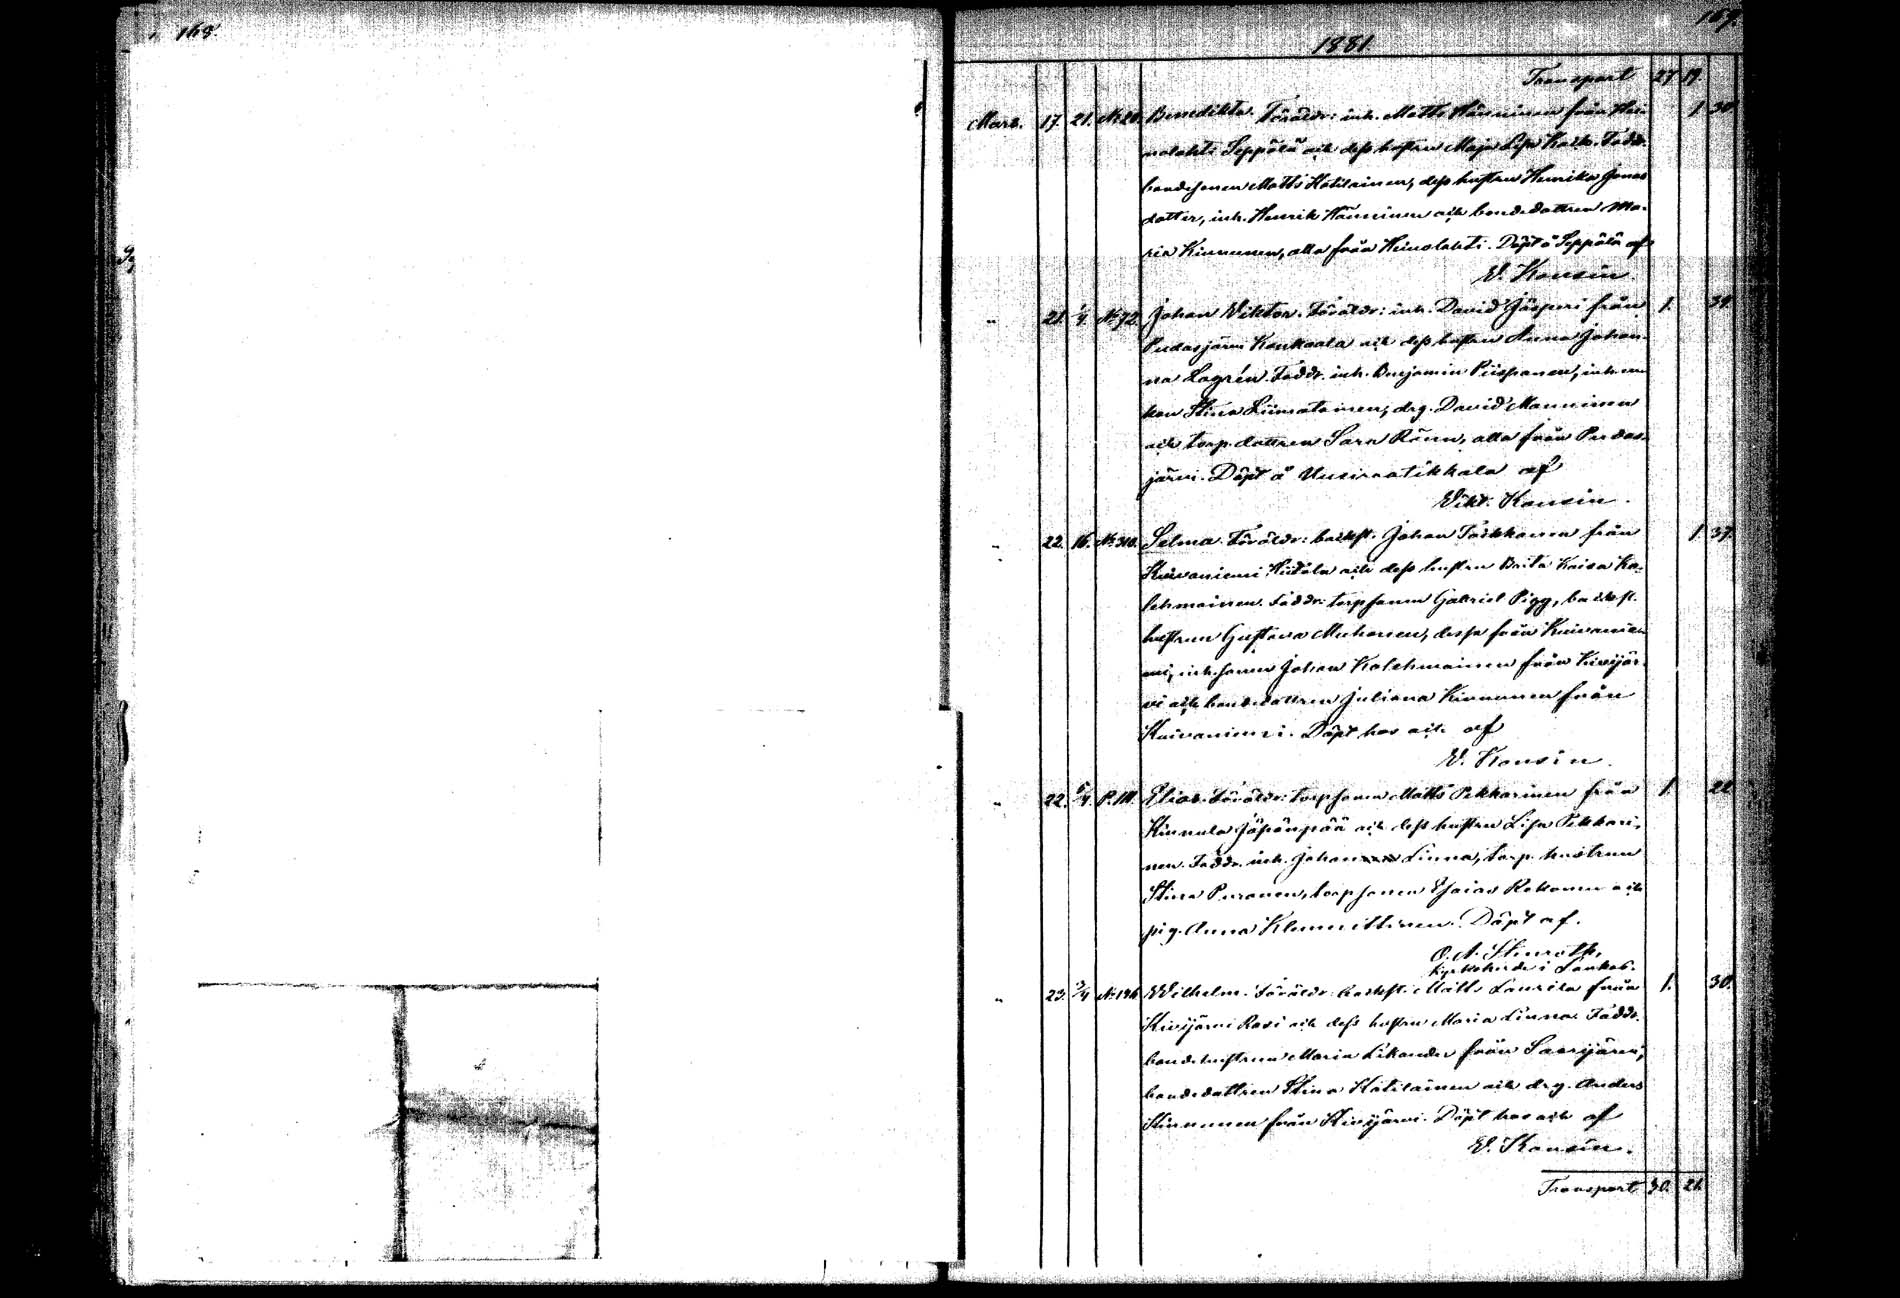 168.
169.
1881.
Transport 27 19.
Mars. 17. 21. N:20. Benedikta. Föräldr: inh. Matts Hänninen från Hei-
nolahti Seppälä och dess hustru Maja Lisa Kark. Faddr.
bondesonen Matts Hätilainen, dess hustru Henrika Jonas
dotter, inh. Henrik Hänninen och bondedottren Ma-
ria Kinnunen, alla från Heinolahti. Döpt å Seppälä af
V. Konsin.
21. 1/4. N:72. Johan Viktor. Föräldr: inh. David Jäspuri från 1. 34.
Pudasjärvi Koukaala och dess hustru Anna Johan-
na Lagrén. Faddr. inh. Benjamin Piispanen, inh. en-
kan Stina Liimatainen, drg. David Manninen
och torp.dottren Sara Rönn, alla från Pudas-
järvi. Döpt å Uusiraatikkala af
Vikt. Konsin.
22. 16. N:310. Selma. Föräldr: backst. Johan Tarkkanen från 1. 37.
Kuivaniemi Hiitola och dess hustru Brita Kaisa Ko-
lehmainen. Faddr: torpsonen Gabriel Pigg, backst.
hustrun Gustava Muhonen, dessa från Kuivanie-
mi, inh.sonen Johan Kolehmainen från Kivijär-
vi och bondedottren Juliana Kinnunen från
Kuivaniemi. Döpt hos och af
V. Konsin.
22. 5/4. P.111. Elias. Föräldr: torpsonen Matts Pekkarinen från 1. 22.
Kinnula Jäpönpää och dess hustru Lisa Pekkari-
nen. Faddr. inh. Johan Linna, torp. hustrun
Stina Puranen, torpsonen Esaias Rekonen och
pig. Anna Klemettinen. Döpt af.
O. A. Stenroth,
kyrkoherde i Laukas.
23. 3/4 N:136. Wilhelm. Föräldr: backst. Matts Laurila från 1. 30.
Kivijärvi Rasi och dess hustru Maria Linna. Faddr.
bondehustrun Maria Likander från Saarijärvi,
bondedottren Stina Hätilainen och drg. Anders
Kinnunen från Kivijärvi. Döpt hos och af
V. Konsin.
Transport 30. 21.